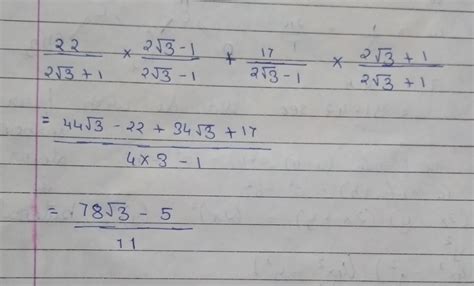 22/(2√3 + 1) × (2√3 - 1)/(2√3 - 1) + 17/(2√3 - 1) × (2√3 + 1)/(2√3 + 1)
= (44√3 - 22 + 34√3 + 17)/(4 × 3 - 1)
= (78√3 - 5)/11